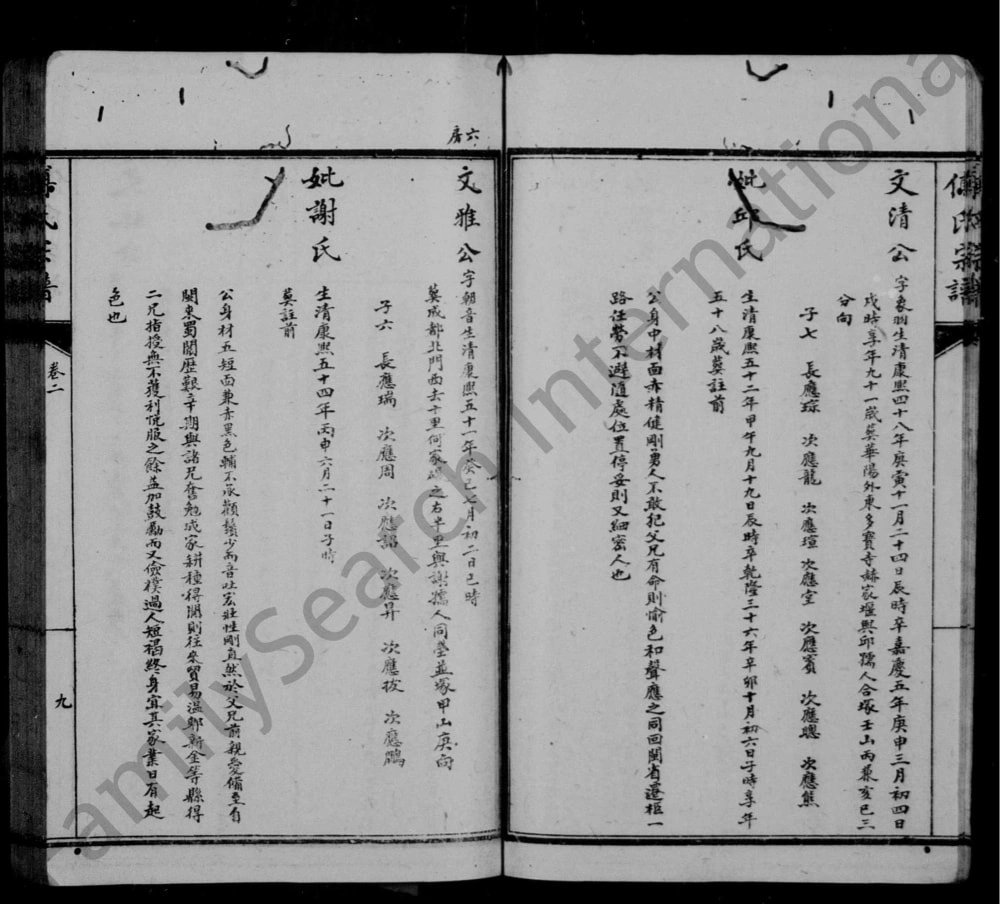 文清公 字象朋生清康熙四十八年庚寅十一月二十四日辰時卒嘉慶五年庚申三月初四日
戌時享年九十一歲葬華陽外東多寶寺赫家堰與邱孺人合塚壬山丙兼亥巳三
分向
子七 長應琮 次應龍 次應瑄 次應室 次應賓 次應聰 次應熊
妣邱氏
生清康熙五十二年甲午九月十九日辰時卒乾隆三十六年辛卯十月初六日子時享年
五十八歲葬註前
公身中材面赤精健剛勇人不敢犯父兄有命則愉色和聲應之同回閩省遷柩一
路任勞不避隨處位置停妥則又細密人也
六房
文雅公 字朝音生清康熙五十一年癸巳七月初二日巳時
葬成都北門西去十里何家之右半里與謝孺人同塋並塚甲山庚向
子六 長應瑞 次應周 次應詔 次應昇 次應拔 次應鵬
妣謝氏
生清康熙五十四年丙申六月二十一日子時
葬註前
公身材五短面兼赤黑色輔不承顴鬚少而音吐宏壯性剛直然於父兄前親愛備至自
閩來蜀閱歷艱辛期與諸兄奮勉成家耕種得閒則往來貿易溫郫新金等縣得
二兄指授無不獲利悅服之餘益加鼓勵而又儉樸過人短褐終身宜其家業日有起
色也
卷二
九